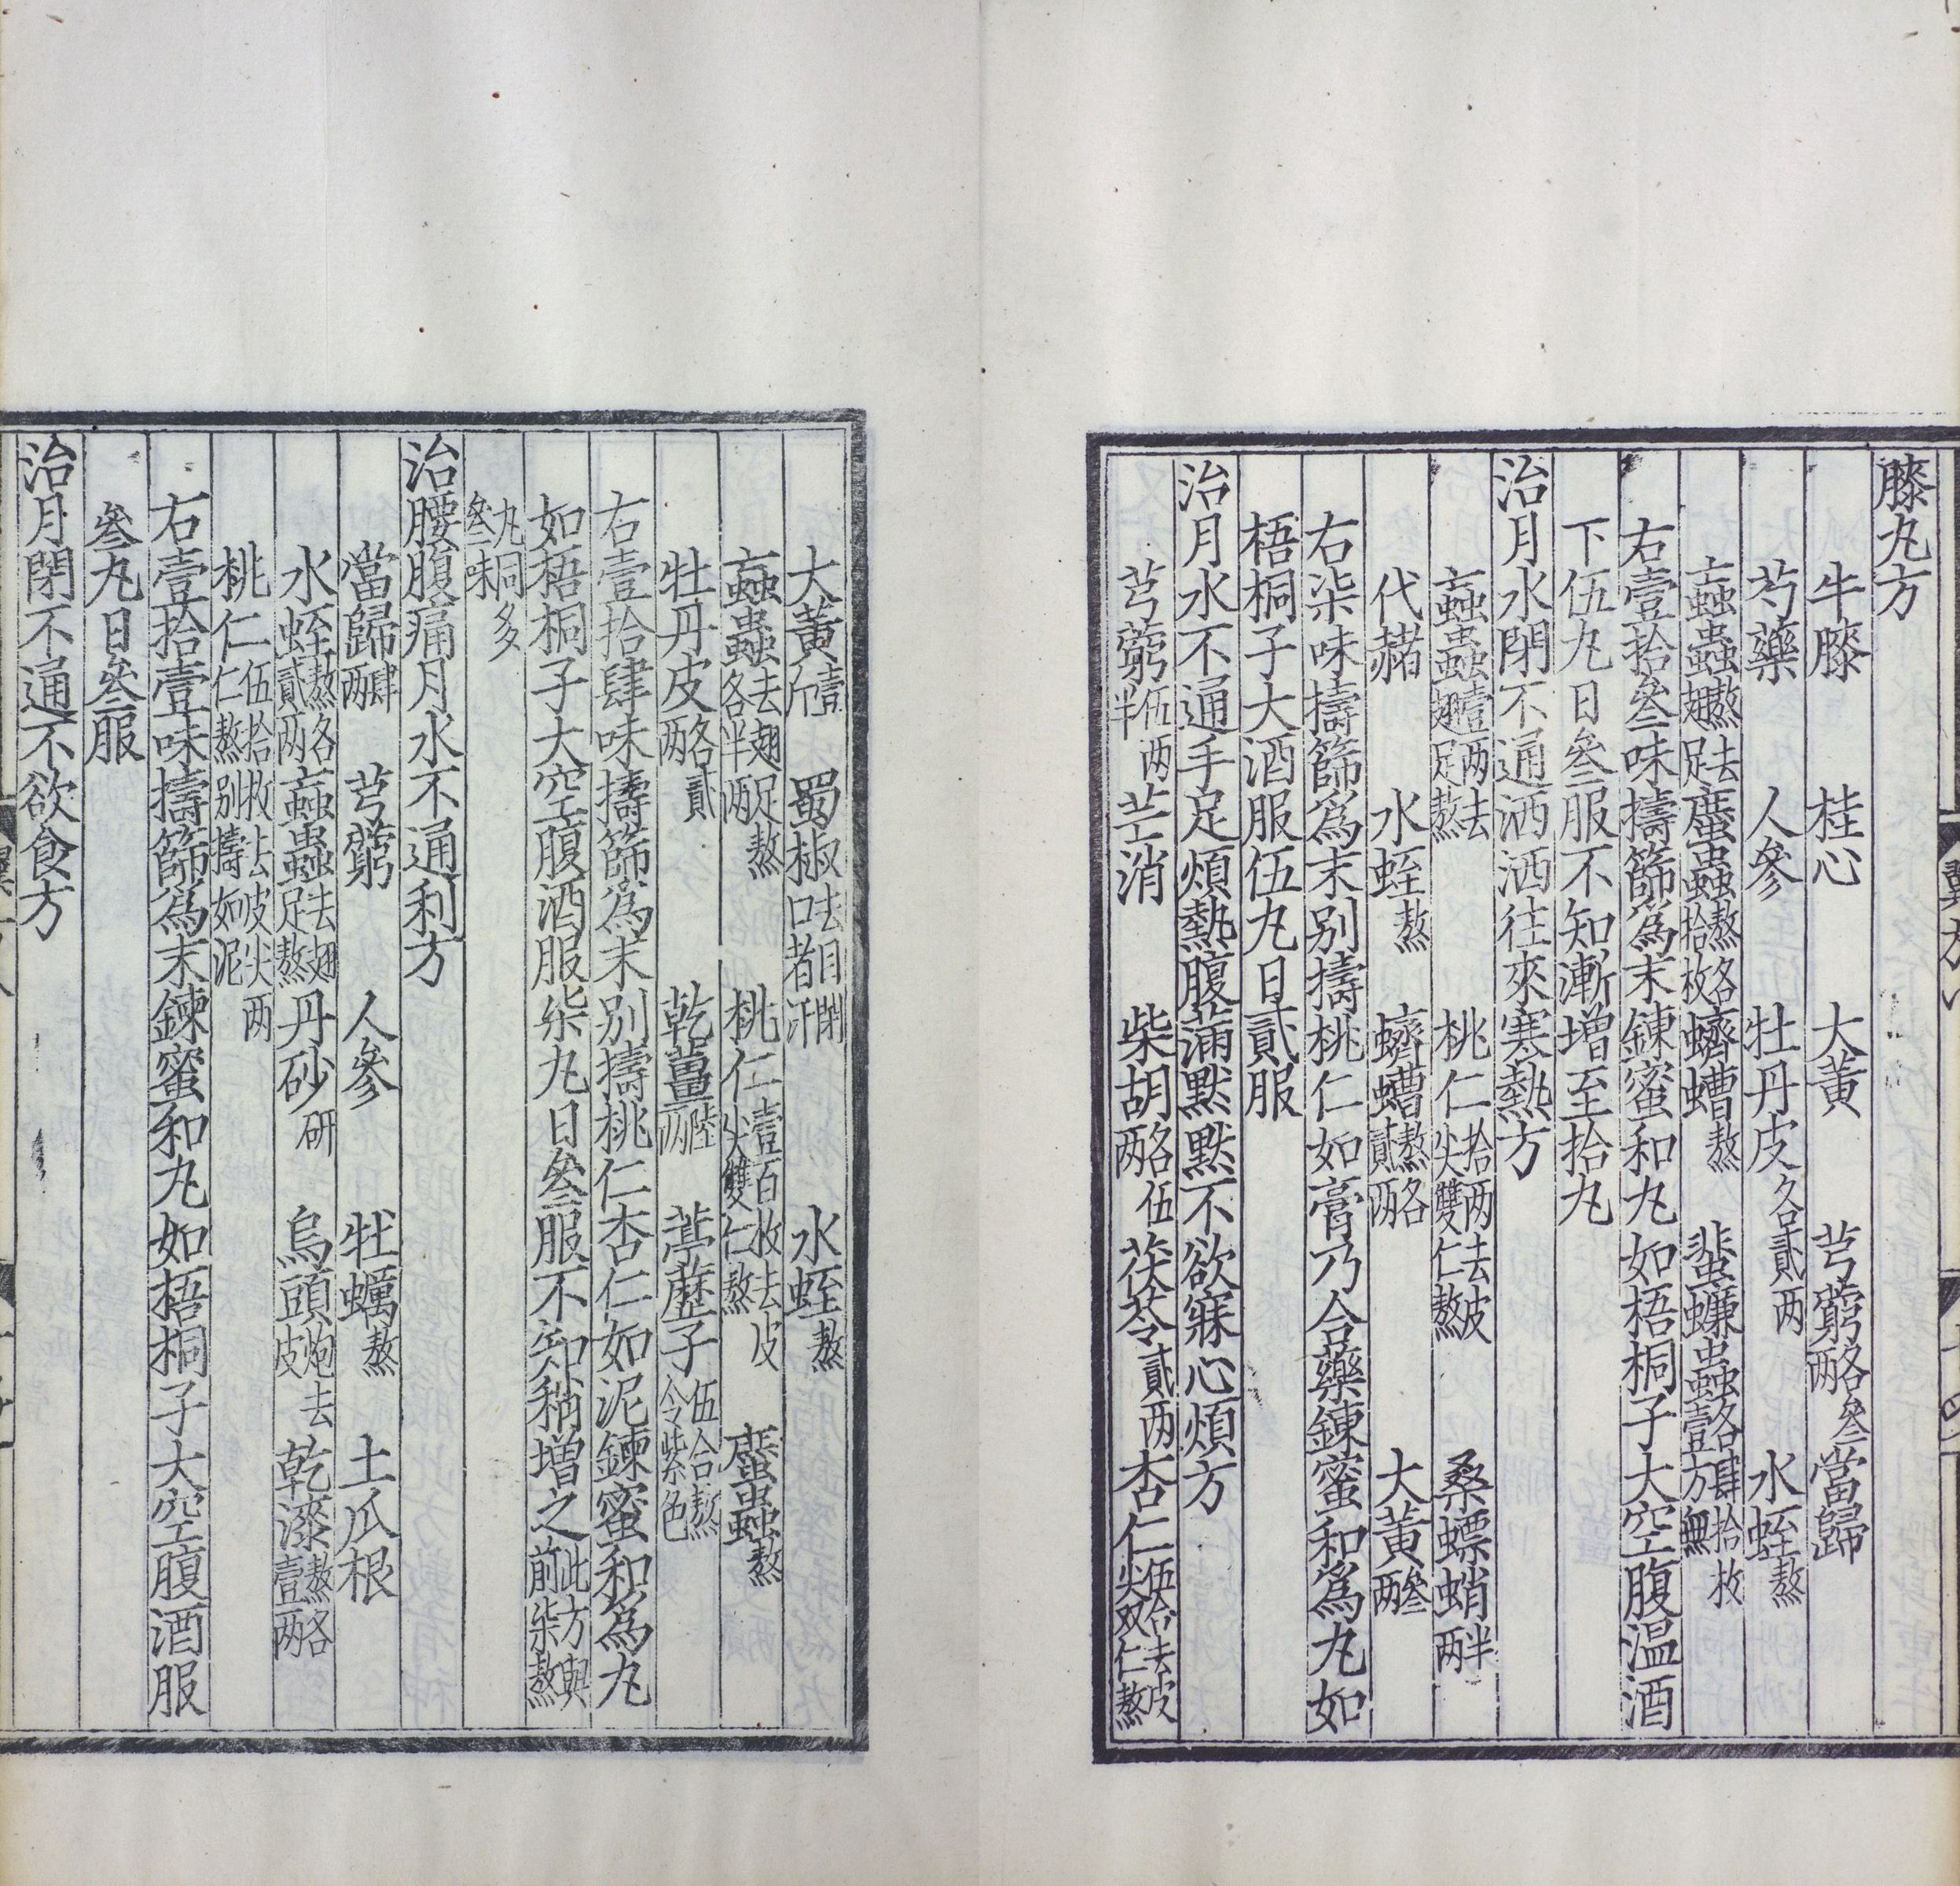 膝丸方
牛膝 桂心 大黃 芎藭各叁两 當歸
芍藥 人參 牡丹皮各貳两 水蛭熬
蝱蟲熬去翅足 䗪蟲熬各拾枚 蠐螬熬 蜚蠊蟲各肆拾枚壹方無
右壹拾叁味擣篩為末鍊蜜和丸如梧桐子大空腹温酒
下伍丸日叁服不知漸增至拾丸
治月水閉不通洒洒往來寒熱方
蝱蟲壹两去翅足熬 桃仁拾两去皮尖雙仁熬 桑螵蛸半两
代赭 水蛭熬 蠐螬熬各貳两 大黃叁两
右柒味擣篩為末別擣桃仁如膏乃合藥鍊蜜和為丸如
梧桐子大酒服伍丸日貳服
治月水不通手足煩熱腹滿默默不欲寐心煩方
芎藭伍两半 芒消 柴胡各伍两 茯苓貳两 杏仁伍合去皮尖双仁熬
大黃壹斤 蜀椒去目閉口者汗 水蛭熬
蝱蟲去翅足熬各半两 桃仁壹百枚去皮尖雙仁熬 䗪蟲熬
牡丹皮各貳两 乾薑陸两 葶藶子伍合熬令紫色
右壹拾肆味擣篩為末別擣桃仁杏仁如泥鍊蜜和為丸
如梧桐子大空腹酒服柒丸日叁服不知稍增之此方與前柒熬
丸桐多叁味
治腰腹痛月水不通利方
當歸肆两 芎藭 人參 牡蠣熬 土瓜根
水蛭熬各貳两 蝱蟲去翅足熬 丹砂研 烏頭炮去皮 乾漆熬各壹两
桃仁伍拾枚去皮尖两仁熬別擣如泥
右壹拾壹味擣篩為末鍊蜜和丸如梧桐子大空腹酒服
叁丸日叁服
治月閉不通不欲食方